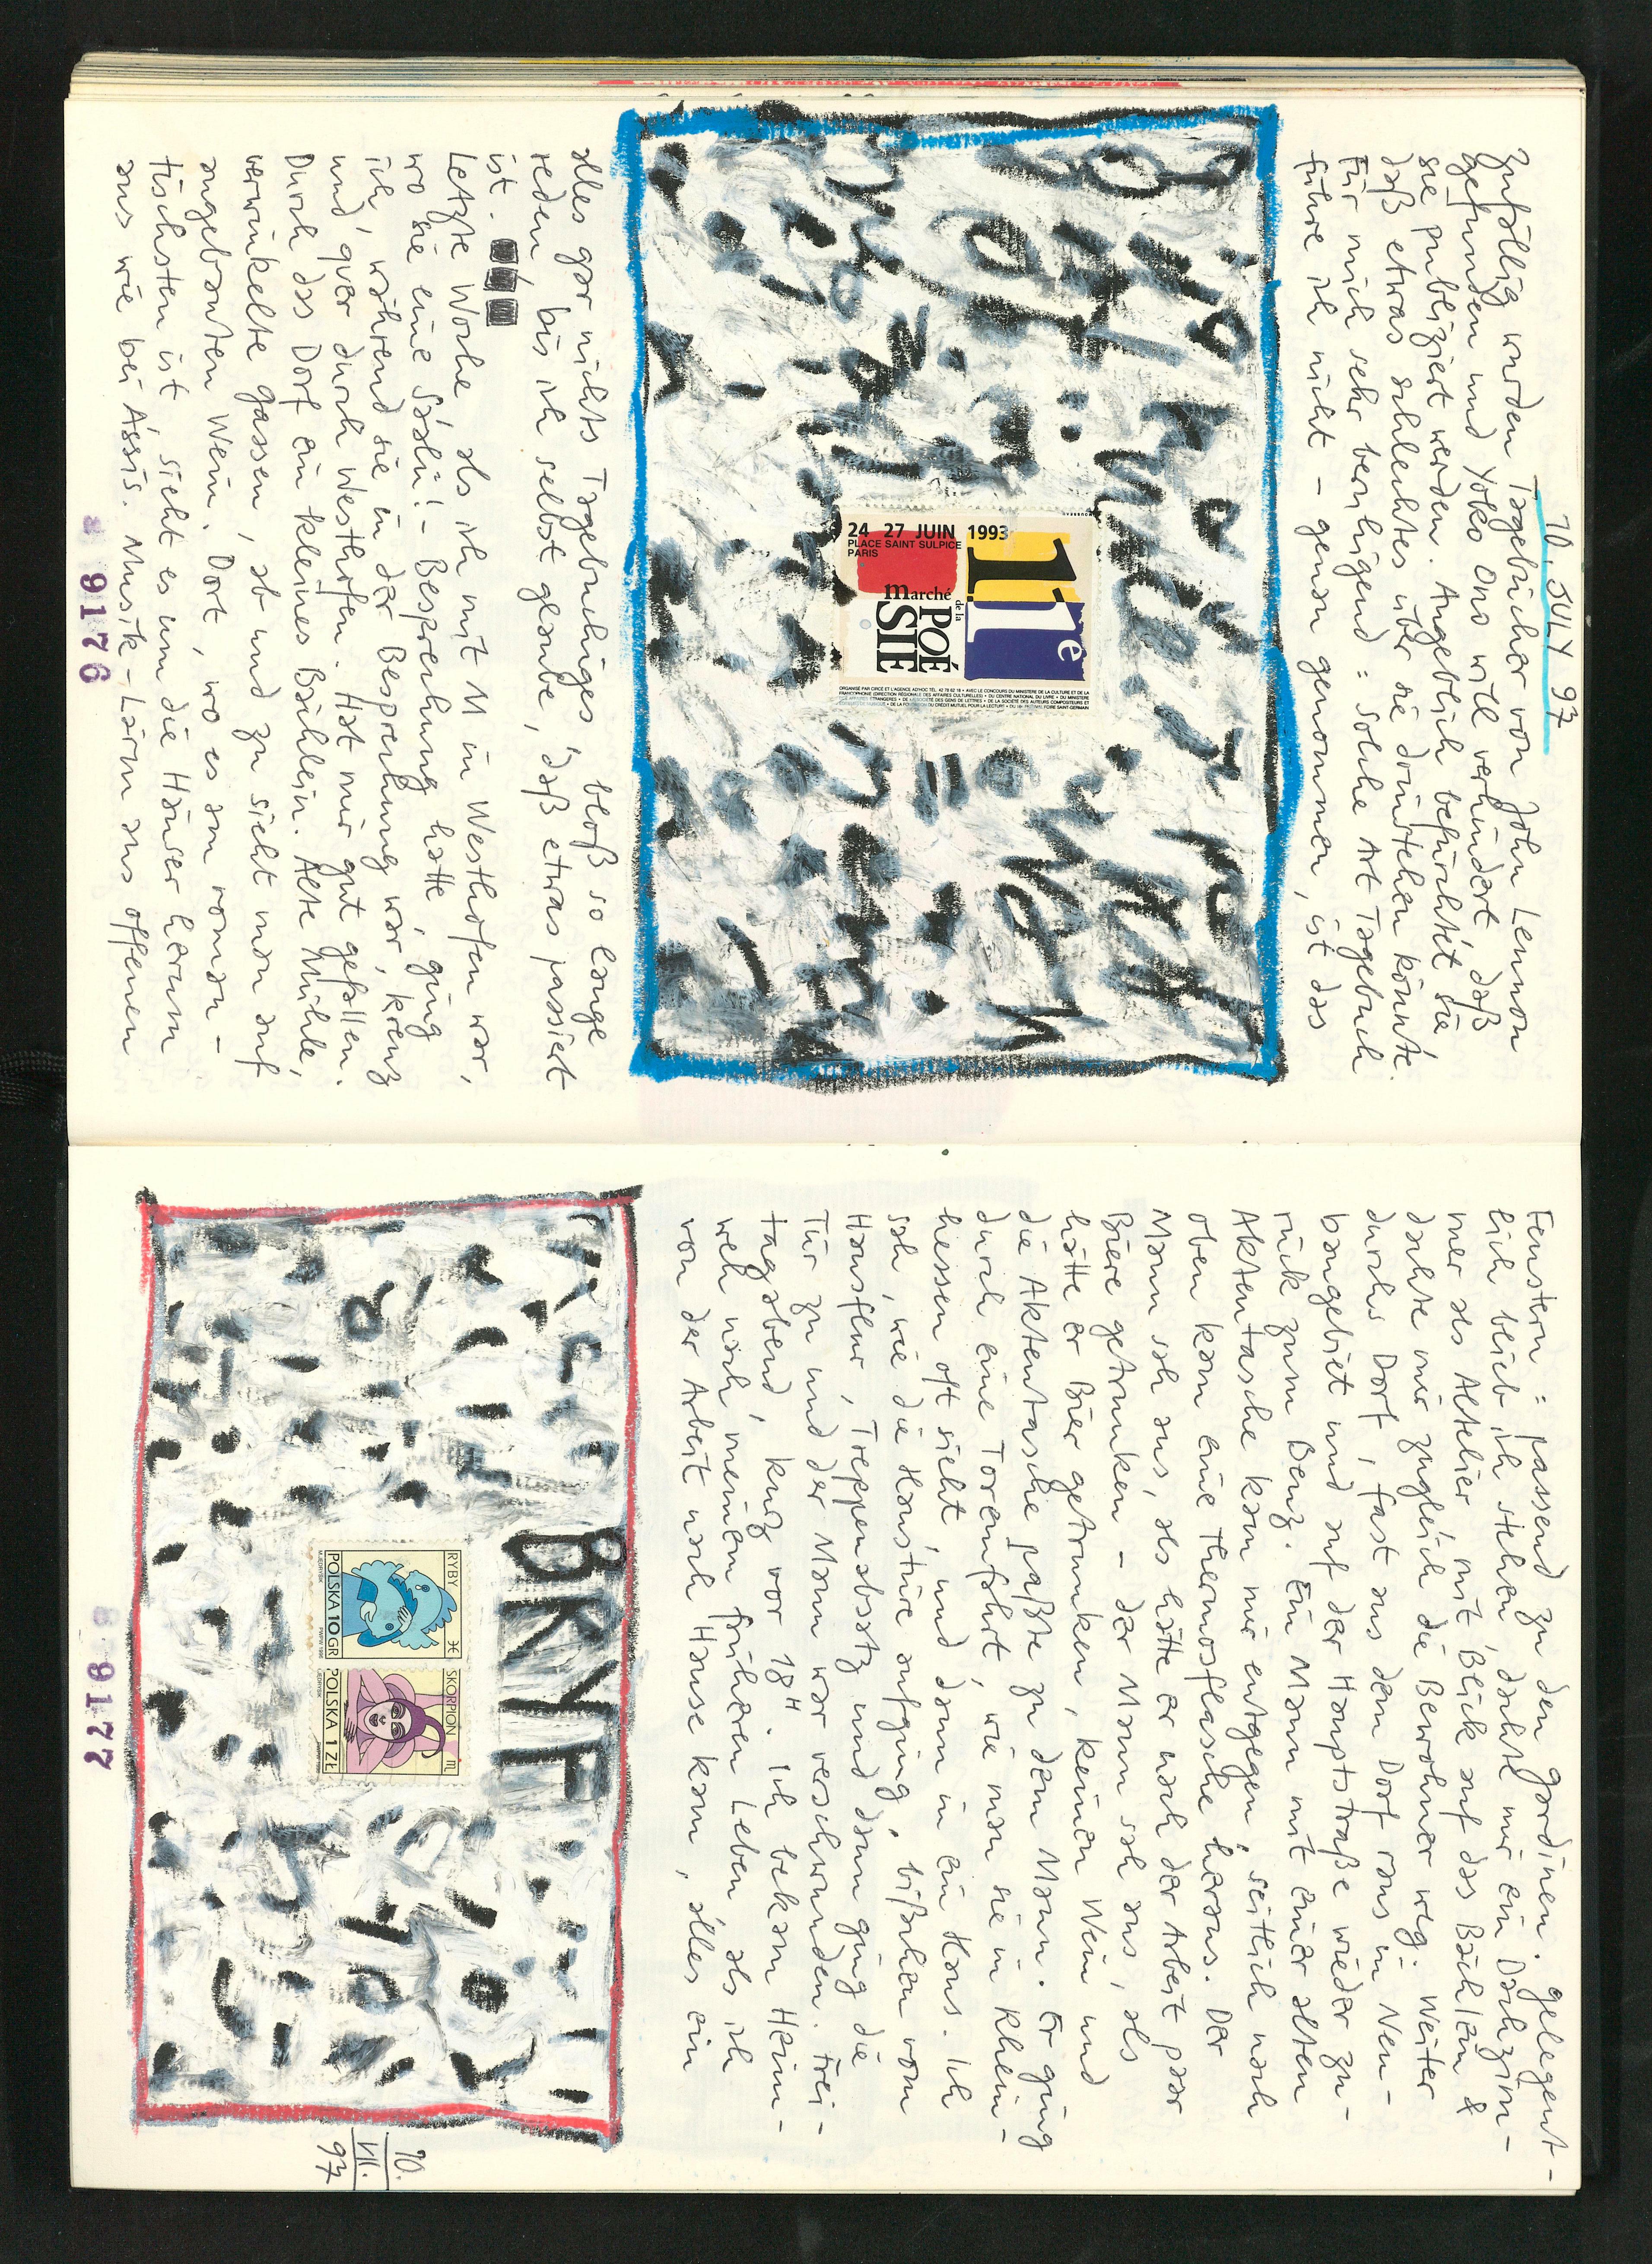 10. JULY 97
Zufällig wurden Tagebücher von John Lennon
gefunden und Yoko Ono will verhindert daß
sie publiziert werden. Angeblich befürchtet sie
daß etwas schlechtes über sie drinstehen könnte.
Für mich sehr beruhigend: Solche Art Tagebuch
führe ich nicht – genau genommen, ist das
24 27 JUIN 1993
PLACE SAINT SULPICE
PARIS
11e
marché
de la
POÉ
SIE
alles gar nichts Tagebuchiges, bloß so lange
reden, bis ich selbst glaube, daß etwas passiert
ist.
Letzte Woche, als ich mit M in Westhofen war,
wo sie eine Besprechung hatte, ging
ich, während sie in der Besprechung war, kreuz
und quer durch Westhofen. Hat mir gut gefallen.
Durch das Dorf ein kleines Bächlein. Alte Mühle,
verwinkelte Gassen, ab und zu sieht man auf
angebauten Wein. Dort, wo es am roman-
tischsten ist, sieht es um die Häuser herum
aus wie bei Assis. Musik-Lärm aus offenen
9176
Fenstern: passend zu den Gardinen. Gelegent-
lich blieb ich stehen, dachte mir ein Dachzim-
mer als Attelier mit Blick auf das Bächlein &
dachte mir zugleich die Bewohner weg. Weiter
durchs Dorf, fast aus dem Dorf raus in Neu-
baugebiet und auf der Hauptstraße wieder zu-
rück zum Benz. Ein Mann mit einer alten
Aktentasche kam mir entgegen, seitlich nach
oben kam eine Thermosflasche heraus. Der
Mann sah aus, als hätte er nach der Arbeit paar
Biere getrunken – der Mann sah aus, als
hätte er Bier getrunken, keinen Wein und
die Aktentasche paßte zu dem Mann. Er ging
durch eine Toreinfahrt, wie man sie in Rhein-
hessen oft sieht, und dann in ein Haus. Ich
sah, wie die Haustüre aufging, bißchen vom
Hausflur, Treppenabsatz und dann ging die
Tür zu und der Mann war verschwunden. Frei-
tagabend, kurz vor 18H. Ich bekam Heim-
weh nach meinem früheren Leben als ich
von der Arbeit nach Hause kam, alles ein
BRYF
RYBY
POLSKA 10 GR
SKORPION
POLSKA 1 ZŁ
10.
VII.
97
9177